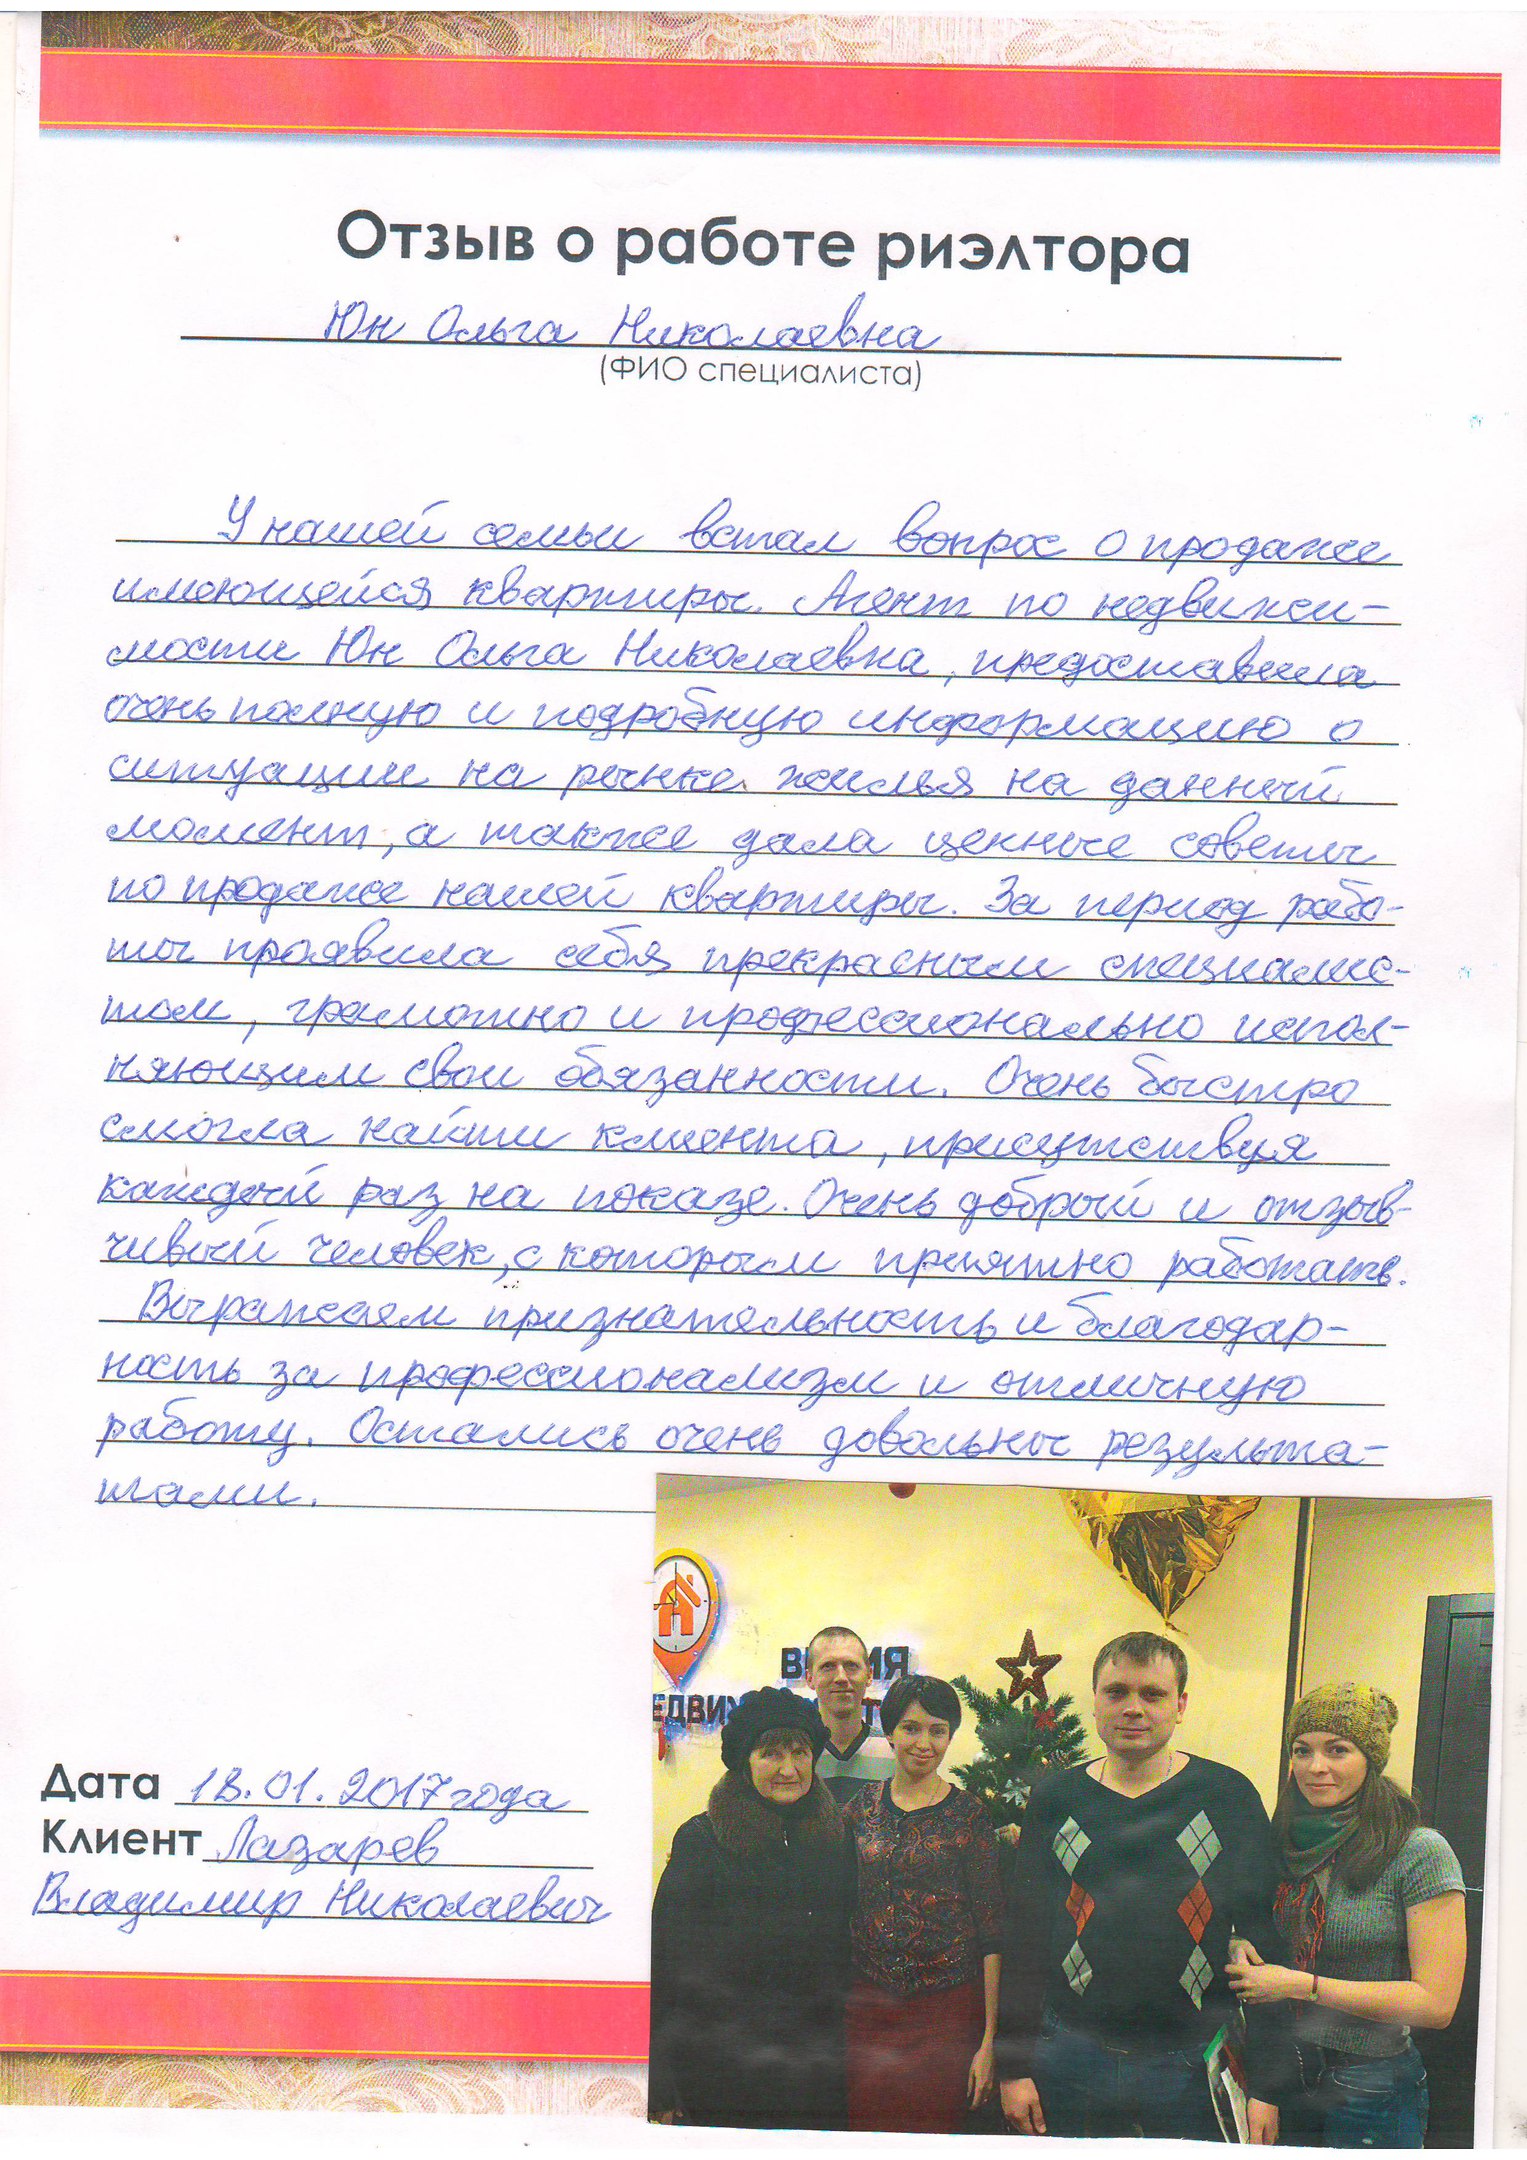 Отзыв о работе риэлтора
Юн Ольга Николаевна
(ФИО специалиста)
У нашей семьи встал вопрос о продаже
имеющейся квартиры. Агент по недвижи-
мости Юн Ольга Николаевна, предоставила
очень полную и подробную информацию о
ситуации на рынке жилья на данный
момент, а также дала ценные советы
по продаже нашей квартиры. За период рабо-
ты проявила себя прекрасным специалис-
том, грамотно и профессионально испол-
няющим свои обязанности. Очень быстро
смогла найти клиента, присутствуя
каждый раз на показе. Очень добрый и отзыв-
чивый человек, с которым приятно работать.
Выражаем признательность и благодар-
ность за профессионализм и отличную
работу. Остались очень довольны результа-
тами.
В ИЯ
ЕДВИ Т
Дата 18.01.2017 года
Клиент Лазарев
Владимир Николаевич